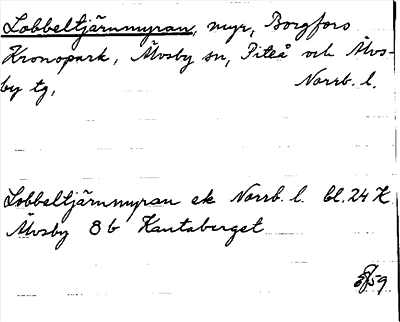 Lobbeltjärnmyran, myr, Borgfors
Kronopark, Älvsby sn, Piteå och Älvs-
by tg, Norrb. l.
Lobbeltjärnmyran ek Norrb. l. bl. 24 K
Älvsby 8 b Kantaberget